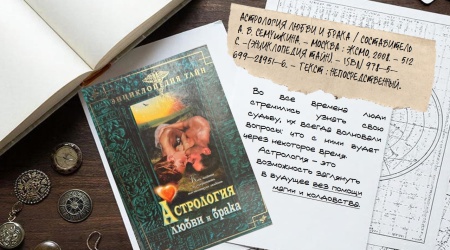 АСТРОЛОГИЯ ЛЮБВИ И БРАКА / СОСТАВИТЕЛЬ
А. В. СЕМУШКИНА. - МОСКВА : ЭКСМО, 2008. - 512
С. - (ЭНЦИКЛОПЕДИЯ ТАЙН). - ISBN 978-5-
699-28951-6. - ТЕКСТ : НЕПОСРЕДСТВЕННЫЙ.
ЭНЦИКЛОПЕДИЯ ТАЙН
АСТРОЛОГИЯ
любви и брака
Во все времена люди
стремились узнать свою
судьбу, их всегда волновали
вопросы: что с ними будет
через некоторое время.
Астрология - это
возможность заглянуть
в будущее без помощи
магии и колдовства.